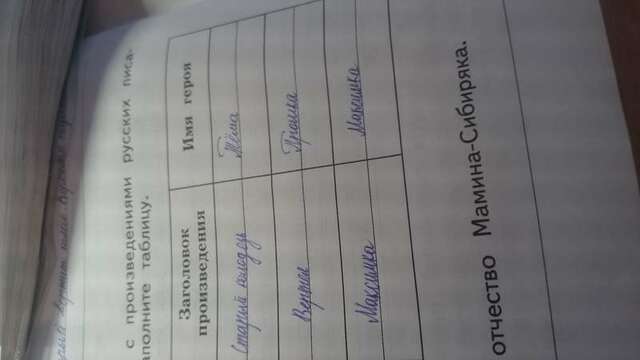 с произведениями русских писа-
аполните таблицу.
Заголовок произведения
Имя героя
Старый колодец
Тёма
Вертел
Прошка
Максимка
Максимка
отчество Мамина-Сибиряка.